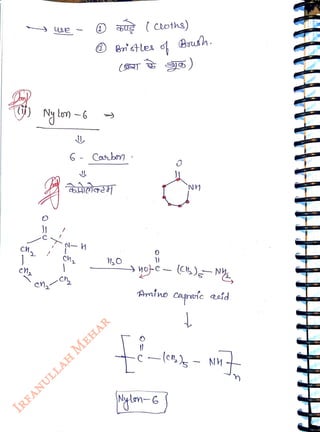 → USE - ① कपड़े (Cloths)
② Bristles of Brush.
(ब्रश के शूक)
Imp
(ii) Nylon-6 →
⇓
6 - Carbon.
⇓
Imp कैप्रोलेक्टम
O
NH
O
C
CH2 N-H
CH2 CH2
CH2 - CH2
H2O
O
HO-C-(CH2)5-NH2
Amino caproic acid
O
[C-(CH2)5-NH]n
Nylon-6
IRFANULLAH MEHAR